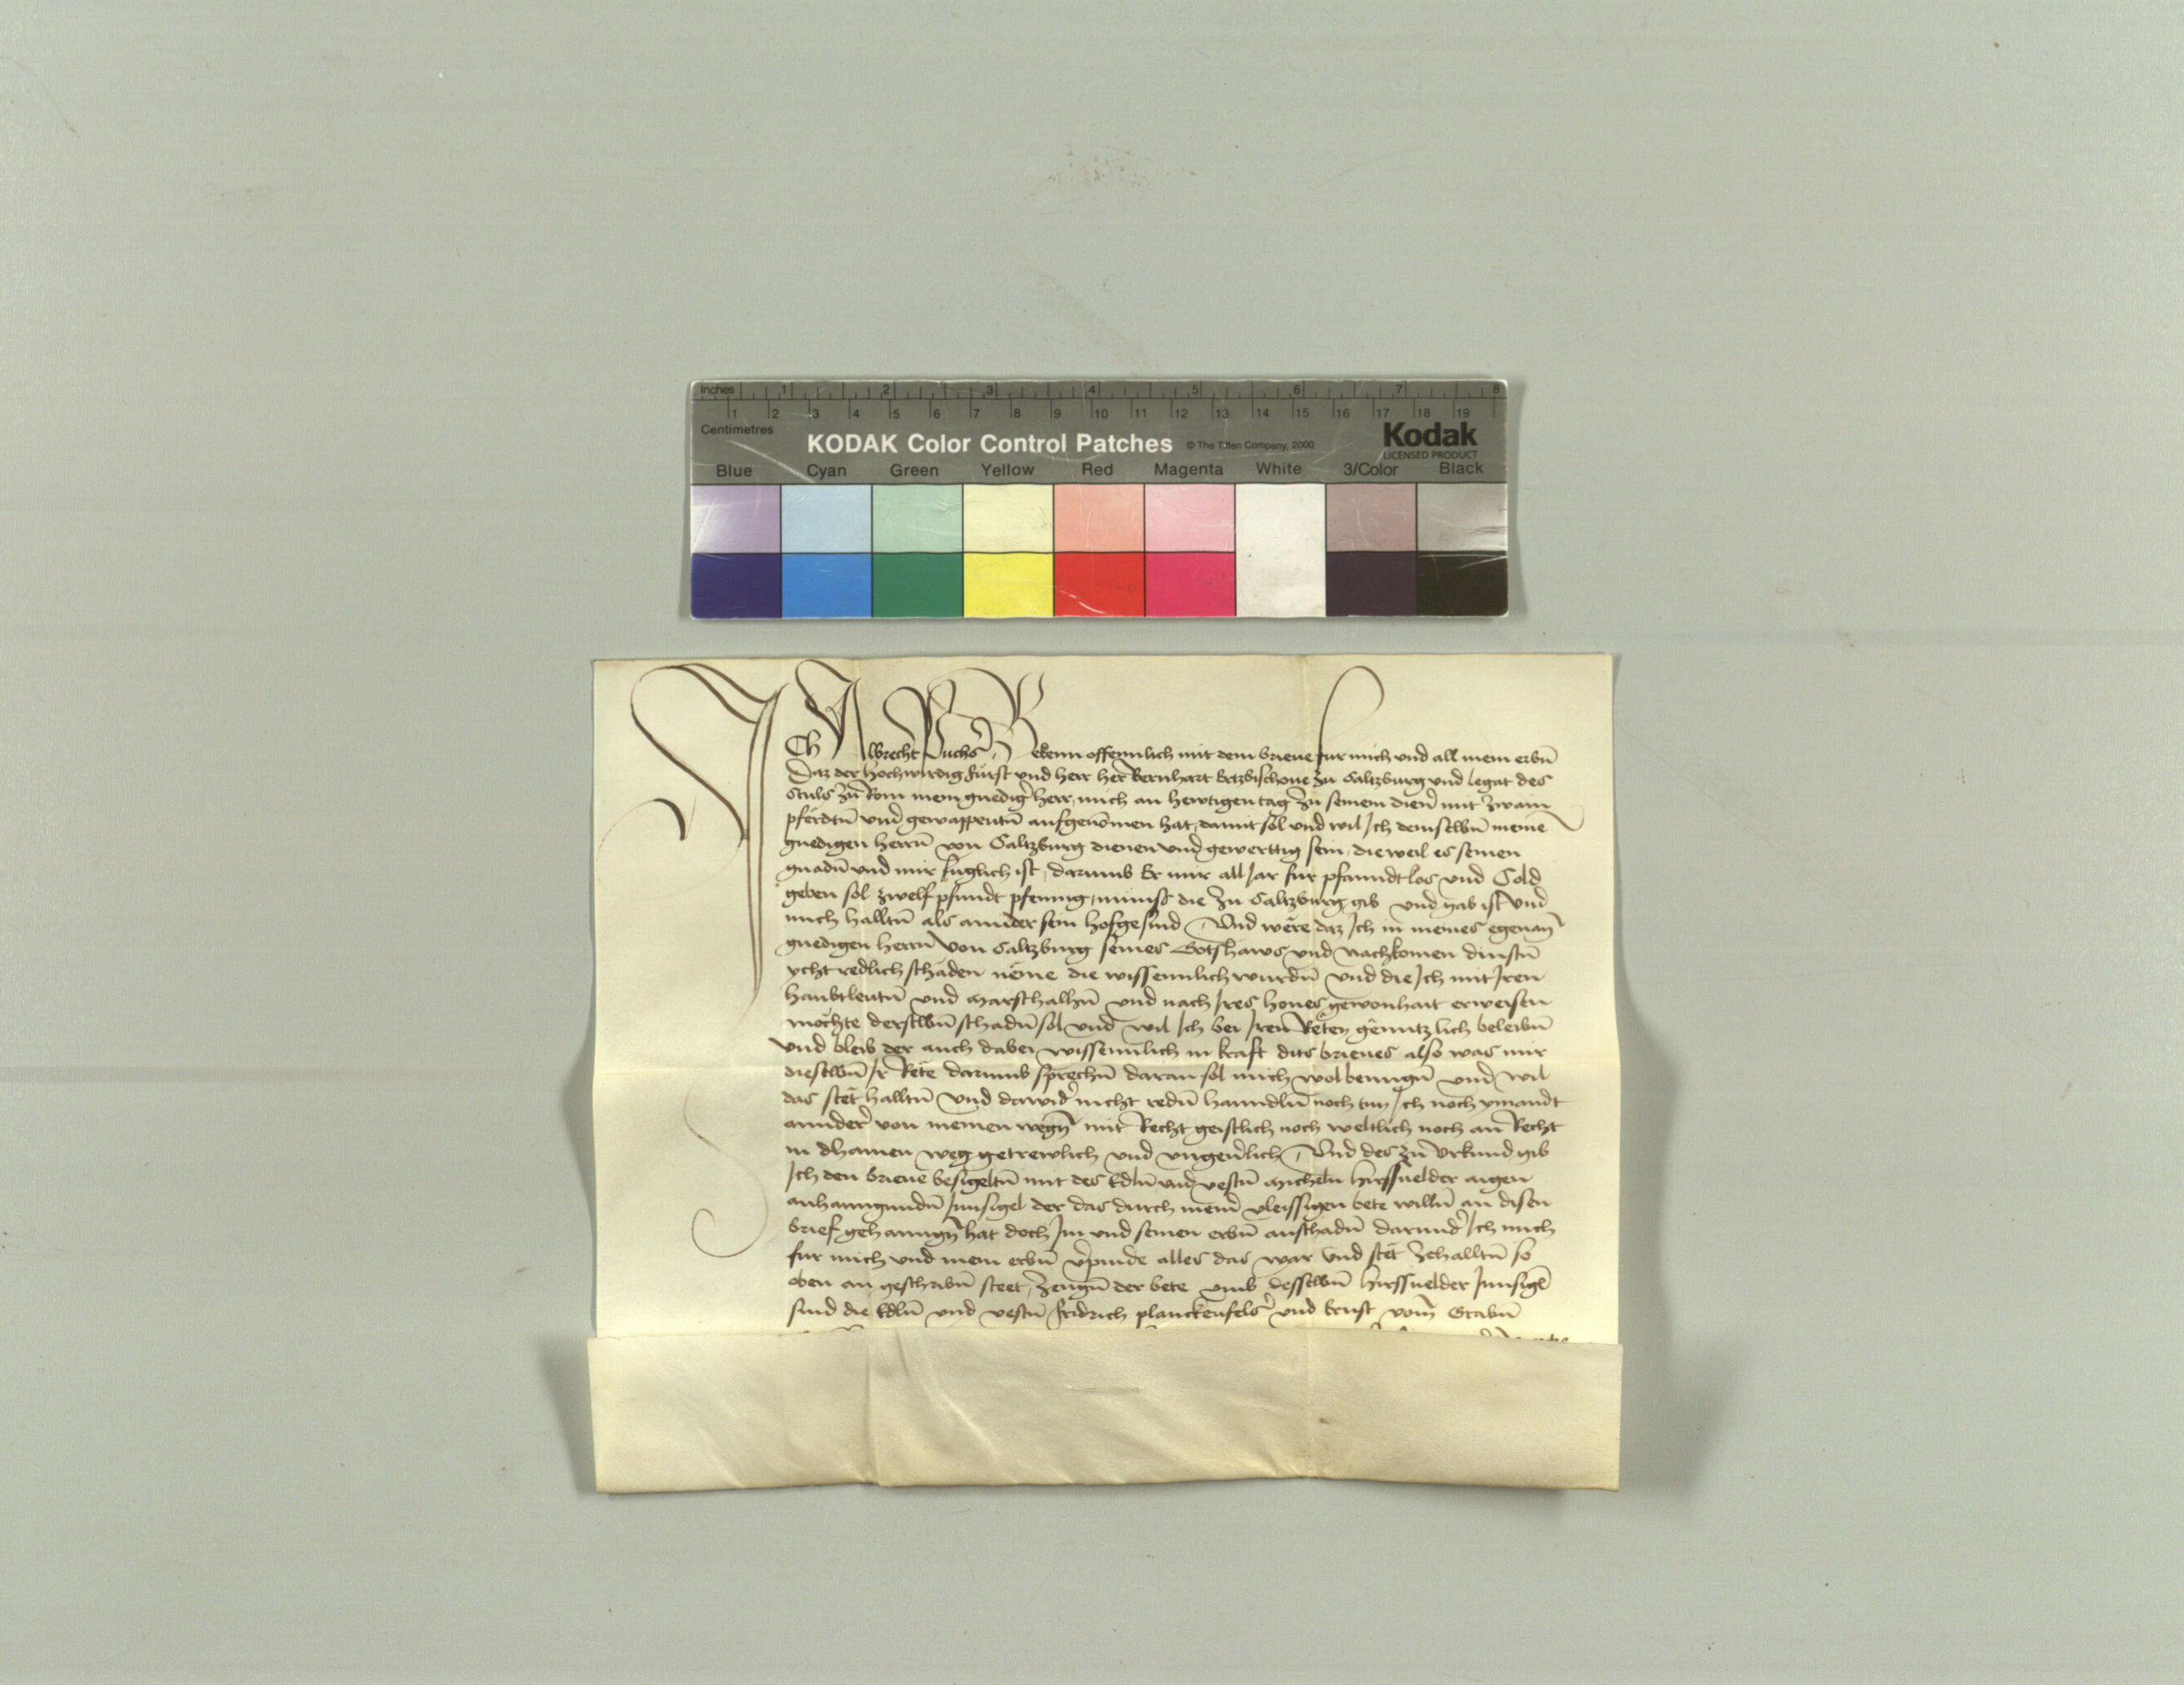 Inches 1 2 3 4 5 6 7 8
1 2 3 4 5 6 7 8 9 10 11 12 13 14 15 16 17 18 19
Centimetres
KODAK Color Control Patches © The Tiffen Company, 2000 Kodak
LICENSED PRODUCT
Blue Cyan Green Yellow Red Magenta White 3/Color Black
Ich Albrecht Fuchs Bekenn offennlich mit dem brieue fur mich und all mein erbn̄
Daz der hochwirdig fürst und herr her Bernhart Ertzbischoue zu Saltzburg und legat des
Stuls zu Rom mein gnedig̾ herr, mich an hewtigen tag zu seinem dien̄ mit zwain
pferdtn̄ und gewappentn̄ aufgenomen hat, damit sol und wil Ich demselbn̄ meinē
gnedigen herrn̄ von Saltzburg dienen und gewerttig sein, dieweil es seinen
gnadn̄ und mir fuglich ist, darumb Er mir all Jar fur pfanndtlos und Sold
geben sol zwelf pfundt pfening, münss die zu Saltzburg gib und gab ist Und
mich halltn̄ als annder sein hofgesind, Und wēre daz Ich in meines egenan̄
gnedigen herrn̄ von Saltzburg seines Gotshaws und Nachkomen dinstn̄
ycht redlich schaden nēme die wissennlich wurdn̄ und die Ich mit Iren
haubtleutn̄ und Marschalhn̄ und nach Ires houes gewonhait erweisen
mochte derselbn̄ schadn̄ sol und wil Ich bei Iren Reten gēnntzlich beleibn̄
und bleib der auch dabei wissennlich in kraft dits brieues also was mir
dieselbn̄ Ir Rēte darumb sprechn̄ daran sol mich wol benugn̄ und wil
das stēt halltn̄ und dawid̾ nicht redn̄ hanndln̄ noch tun Ich noch ymandt
annder̾ von meinen wegn̄ mit Recht geistlich noch weltlich noch an̄ Recht
in dhainen weg getrewlich und ungeu̾lich, Und des zu Urkund gib
Ich den brieue besigeltn̄ mit des Edln̄ und vestn̄ Micheln hirssuelder aigen
anhanngundn̄ Innsigel der das durch meinr̄ vleissigen bete willn̄ an disen
brief gehanngn̄ hat doch Im und seinen erbn̄ anschadn̄ darund̾ Ich mich
fur mich und mein erbn̄ v̾pinde alles das war und stēt zehalltn̄ so
oben an geschribn̄ steet, Zeugn̄ der bete umb desselbn̄ hirssuelder Innsigl̄
sind die Edln̄ und vestn̄ fridrich planckenfels̾ und Ernst vom̄ Grabn̄